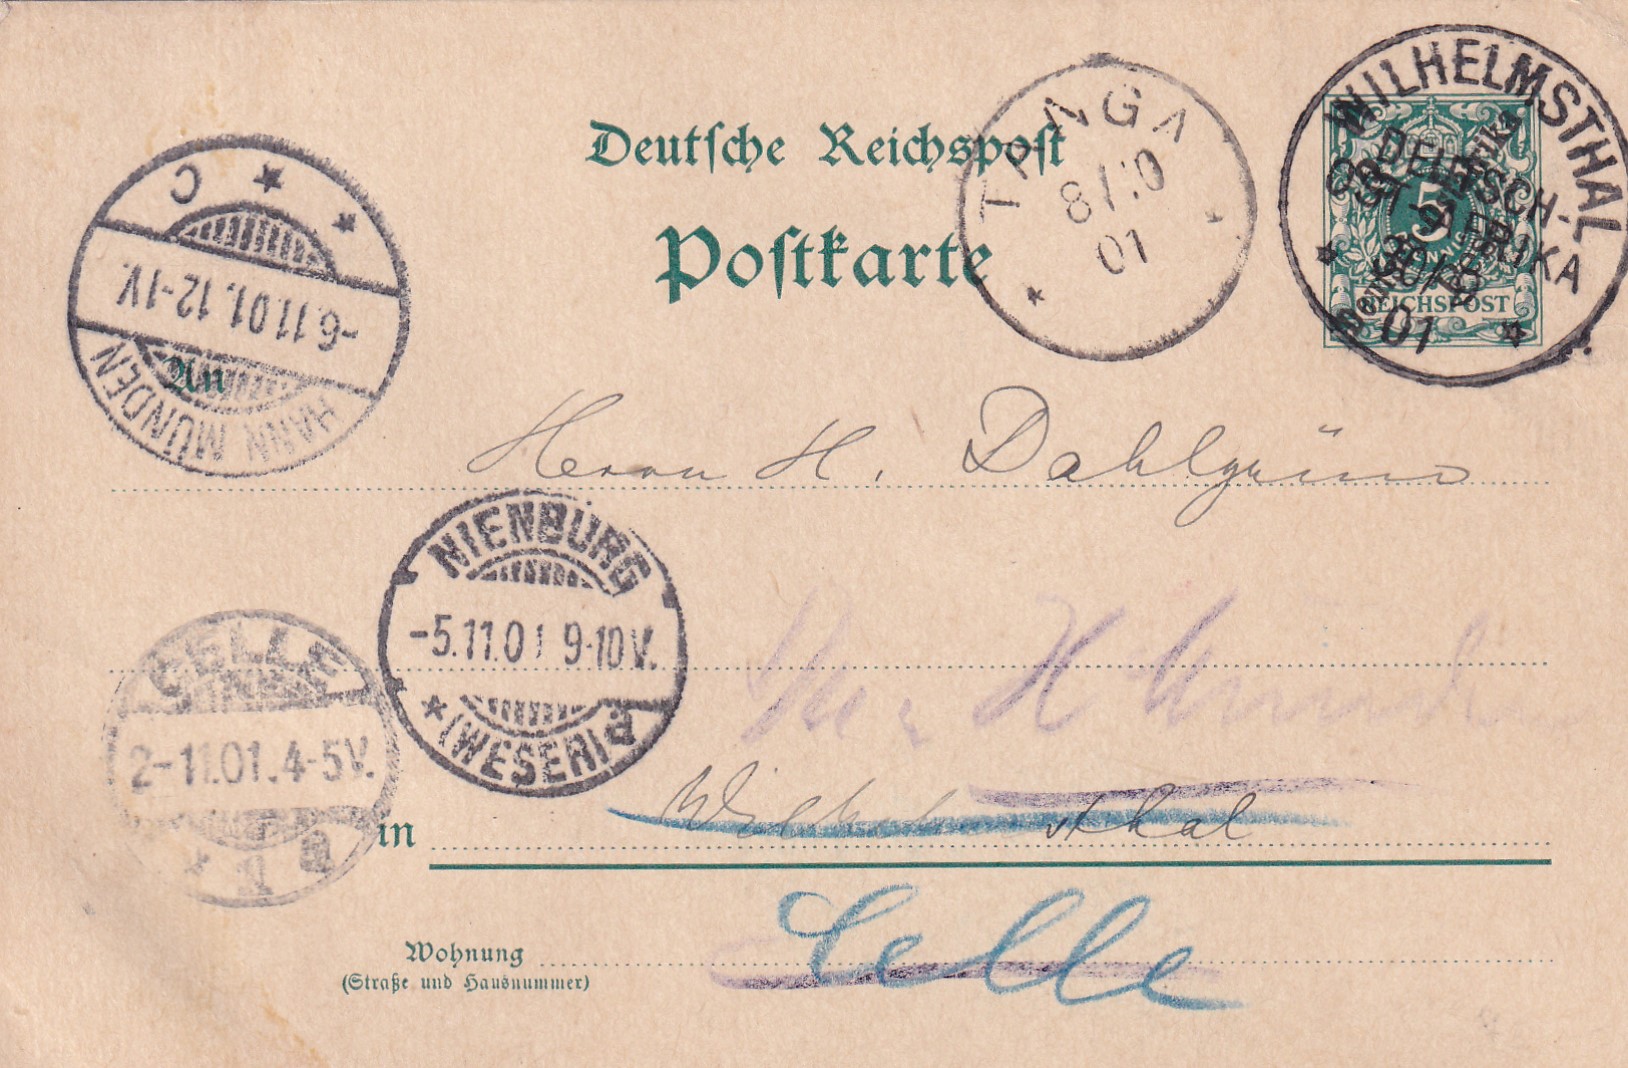 Deutsche Reichspost
Postkarte
TANGA
8/10
01
WILHELMSTHAL
DEUTSCH-
OST-AFRIKA
30/8
01
5
REICHSPOST
C
-6.11.01.12-1V.
HANN MÜNDEN
An
Herrn H. Dahlgrün
NIENBURG
-5.11.01 9-10V.
(WESER) a
CELLE
2-11.01.4-5V.
1 a
in Wilhelmsthal
Celle
Wohnung
(Straße und Hausnummer)